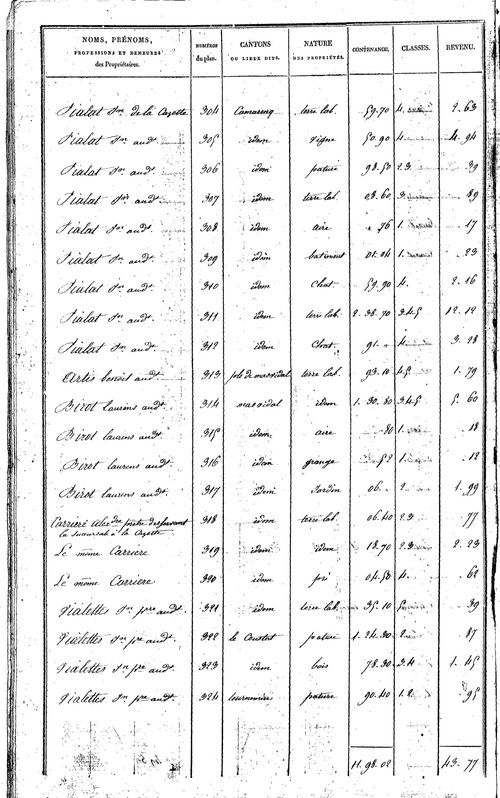 NOMS, PRÉNOMS, PROFESSIONS ET DEMEURES des Propriétaires. NUMÉROS du plan. CANTONS OU LIEUX DITS. NATURE DES PROPRIÉTÉS. CONTENANCE. CLASSES. REVENU.
Vialat Jn de la Cazette 304 Camareng terre lab. 59.70 4. 2.63
Vialat Jn audt 305 idem Vigne 50.90 4 4.94
Vialat Jn audt 306 idem pature 98.50 2.3 .39
Vialat Jn audt 307 idem terre lab. 08.60 3. .89
Vialat Jn audt 308 idem aire .76 1. .17
Vialat Jn audt 309 idem batiment 01.04 1. .23
Vialat Jn audt 310 idem Chat. 59.90 4. 2.16
Vialat Jn audt. 311 idem terre lab. 2.38.70 3.4.5 12.12
Vialat Jn audt. 312 idem Chat. 91. 4. 3.28
Artis benoit audt. 313 terre lab. 93.10 4.5. 1.79
Birot laurens audt. 314 mas vidal idem 1.30.80 3.4.5 5.60
Birot laurens audt. 315 idem aire .80 1. .18
Birot laurens audt. 316 idem grange .52 1. .12
Birot laurens audt. 317 idem Jardin 06. 2 1.99
Carriere prêtre desservant 318 idem terre lab. 06.40 2.3 .77
la succursale à la Cazette
Le même Carriere 319 idem idem 18.70 2.3 2.23
Le même Carriere 320 idem pré 04.50 4. .62
Vialettes Jn pre audt. 321 idem terre lab. 35.10 5. .39
Vialettes Jn pre audt. 322 pature 1.24.30 2. .87
Vialettes Jn pre audt. 323 idem bois 78.30 3.4 1.45
Vialettes Jn pre audt. 324 pature 90.40 1.2. .95
11.98.02 43.77